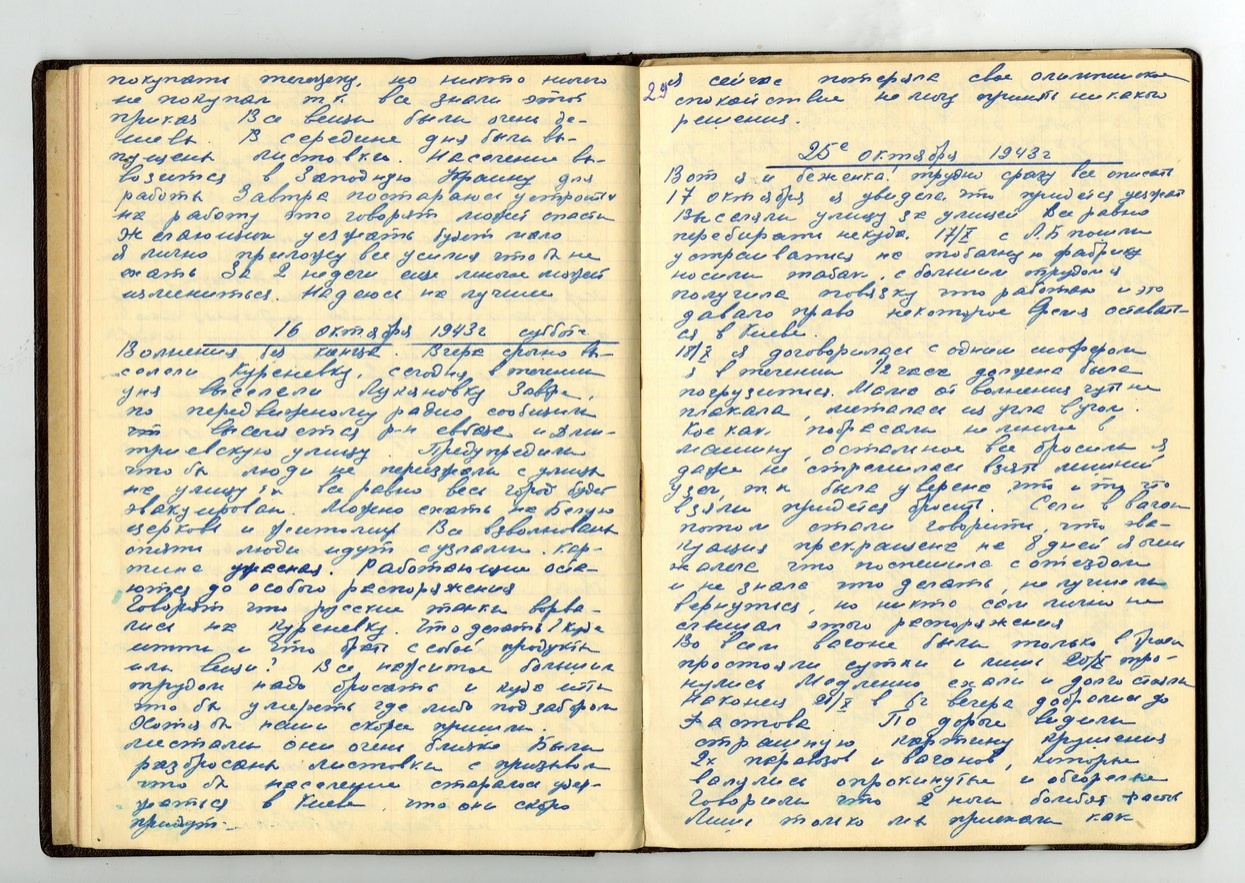 покупать тележку, но никто ничего
не покупал т.к. все знали этот
приказ Все вещи были очень де-
шевы. В середине дня были вы-
пущены листовки. Население вы-
возится в Западную Украину для
работы Завтра постараюсь устроиться
на работу это говорят может спасти
Желающих уезжать будет мало
Я лично приложу все усилия что бы не
ехать За 2 недели еще многое может
измениться. Надеюсь на лучшее
16 октября 1943г суббота
Волнения без конца. Вчера срочно вы-
селяли Куреневку, сегодня в течении
дня выселяли Лукьяновку Завтра,
по передвижному радио сообщили
что выселяется р-н евбаза и Дми-
триевскую улицу. Предупредили
что бы люди не переезжали с улицы
на улицу т.к все равно весь город будет
эвакуирован. Можно ехать на Белую
церковь и Житомир Все взволнованы
опять люди идут с узлами. Кар-
тина ужасная. Работающие оста-
ются до особого распоряжения
Говорят что русские танки ворва-
лись на Куреневку. Что делать? куда
итти и что брать с собой продукты
или вещи? Все нажитое большим
трудом надо бросать и куда итти
что бы умереть где либо под забором
Хотя бы наши скорее пришли.
они очень близко Были
разбросаны листовки с призывом
что бы население старалось удер-
жаться в Киеве, что они скоро
придут.
29 я сейчас потеряла свое олимпийское
спокойствие не могу принять никакого
решения.
25е октября 1943г
Вот я и беженка! трудно сразу все описать
17 октября я увидела что придется уезжать
Выселяли улицу за улицей Все равно
перебирать некуда. 17/X с Л.Б пошли
устраиваться на табачную фабрику
носили табак, с большим трудом я
получила повязку что работаю и это
давало право некоторое время оставать-
ся в Киеве.
18/X я договорилась с одним шофером
и в течении 1/2 часа должна была
погрузиться. Мама от волнения чуть не
плакала, металась из угла в угол.
Кое как побросали немного в
машину, остальное все бросили я
даже не стремилась взять лишний
узел, т.к была уверена, что и то, что
взяли придется бросить. Сели в вагон
потом стали говорить, что эва-
куация прекращена на 8 дней Я были
жалела что поспешила с отъездом
и не знала что делать, не лучше ли
вернуться, но никто сам лично не
слышал этого распоряжения
Во всем вагоне были только втроем
простояли сутки и лишь 20/X тро-
нулись Медленно ехали и долго стояли
Наконец 21/X в 6ч вечера добрались до
Фастова По дороге видели
страшную картину крушения
2х паравозов и вагонов, которые
валялись опрокинутые и обгорелые
Говорили что 2 ночи бомбят Фастов
Лишь только мы приехали как